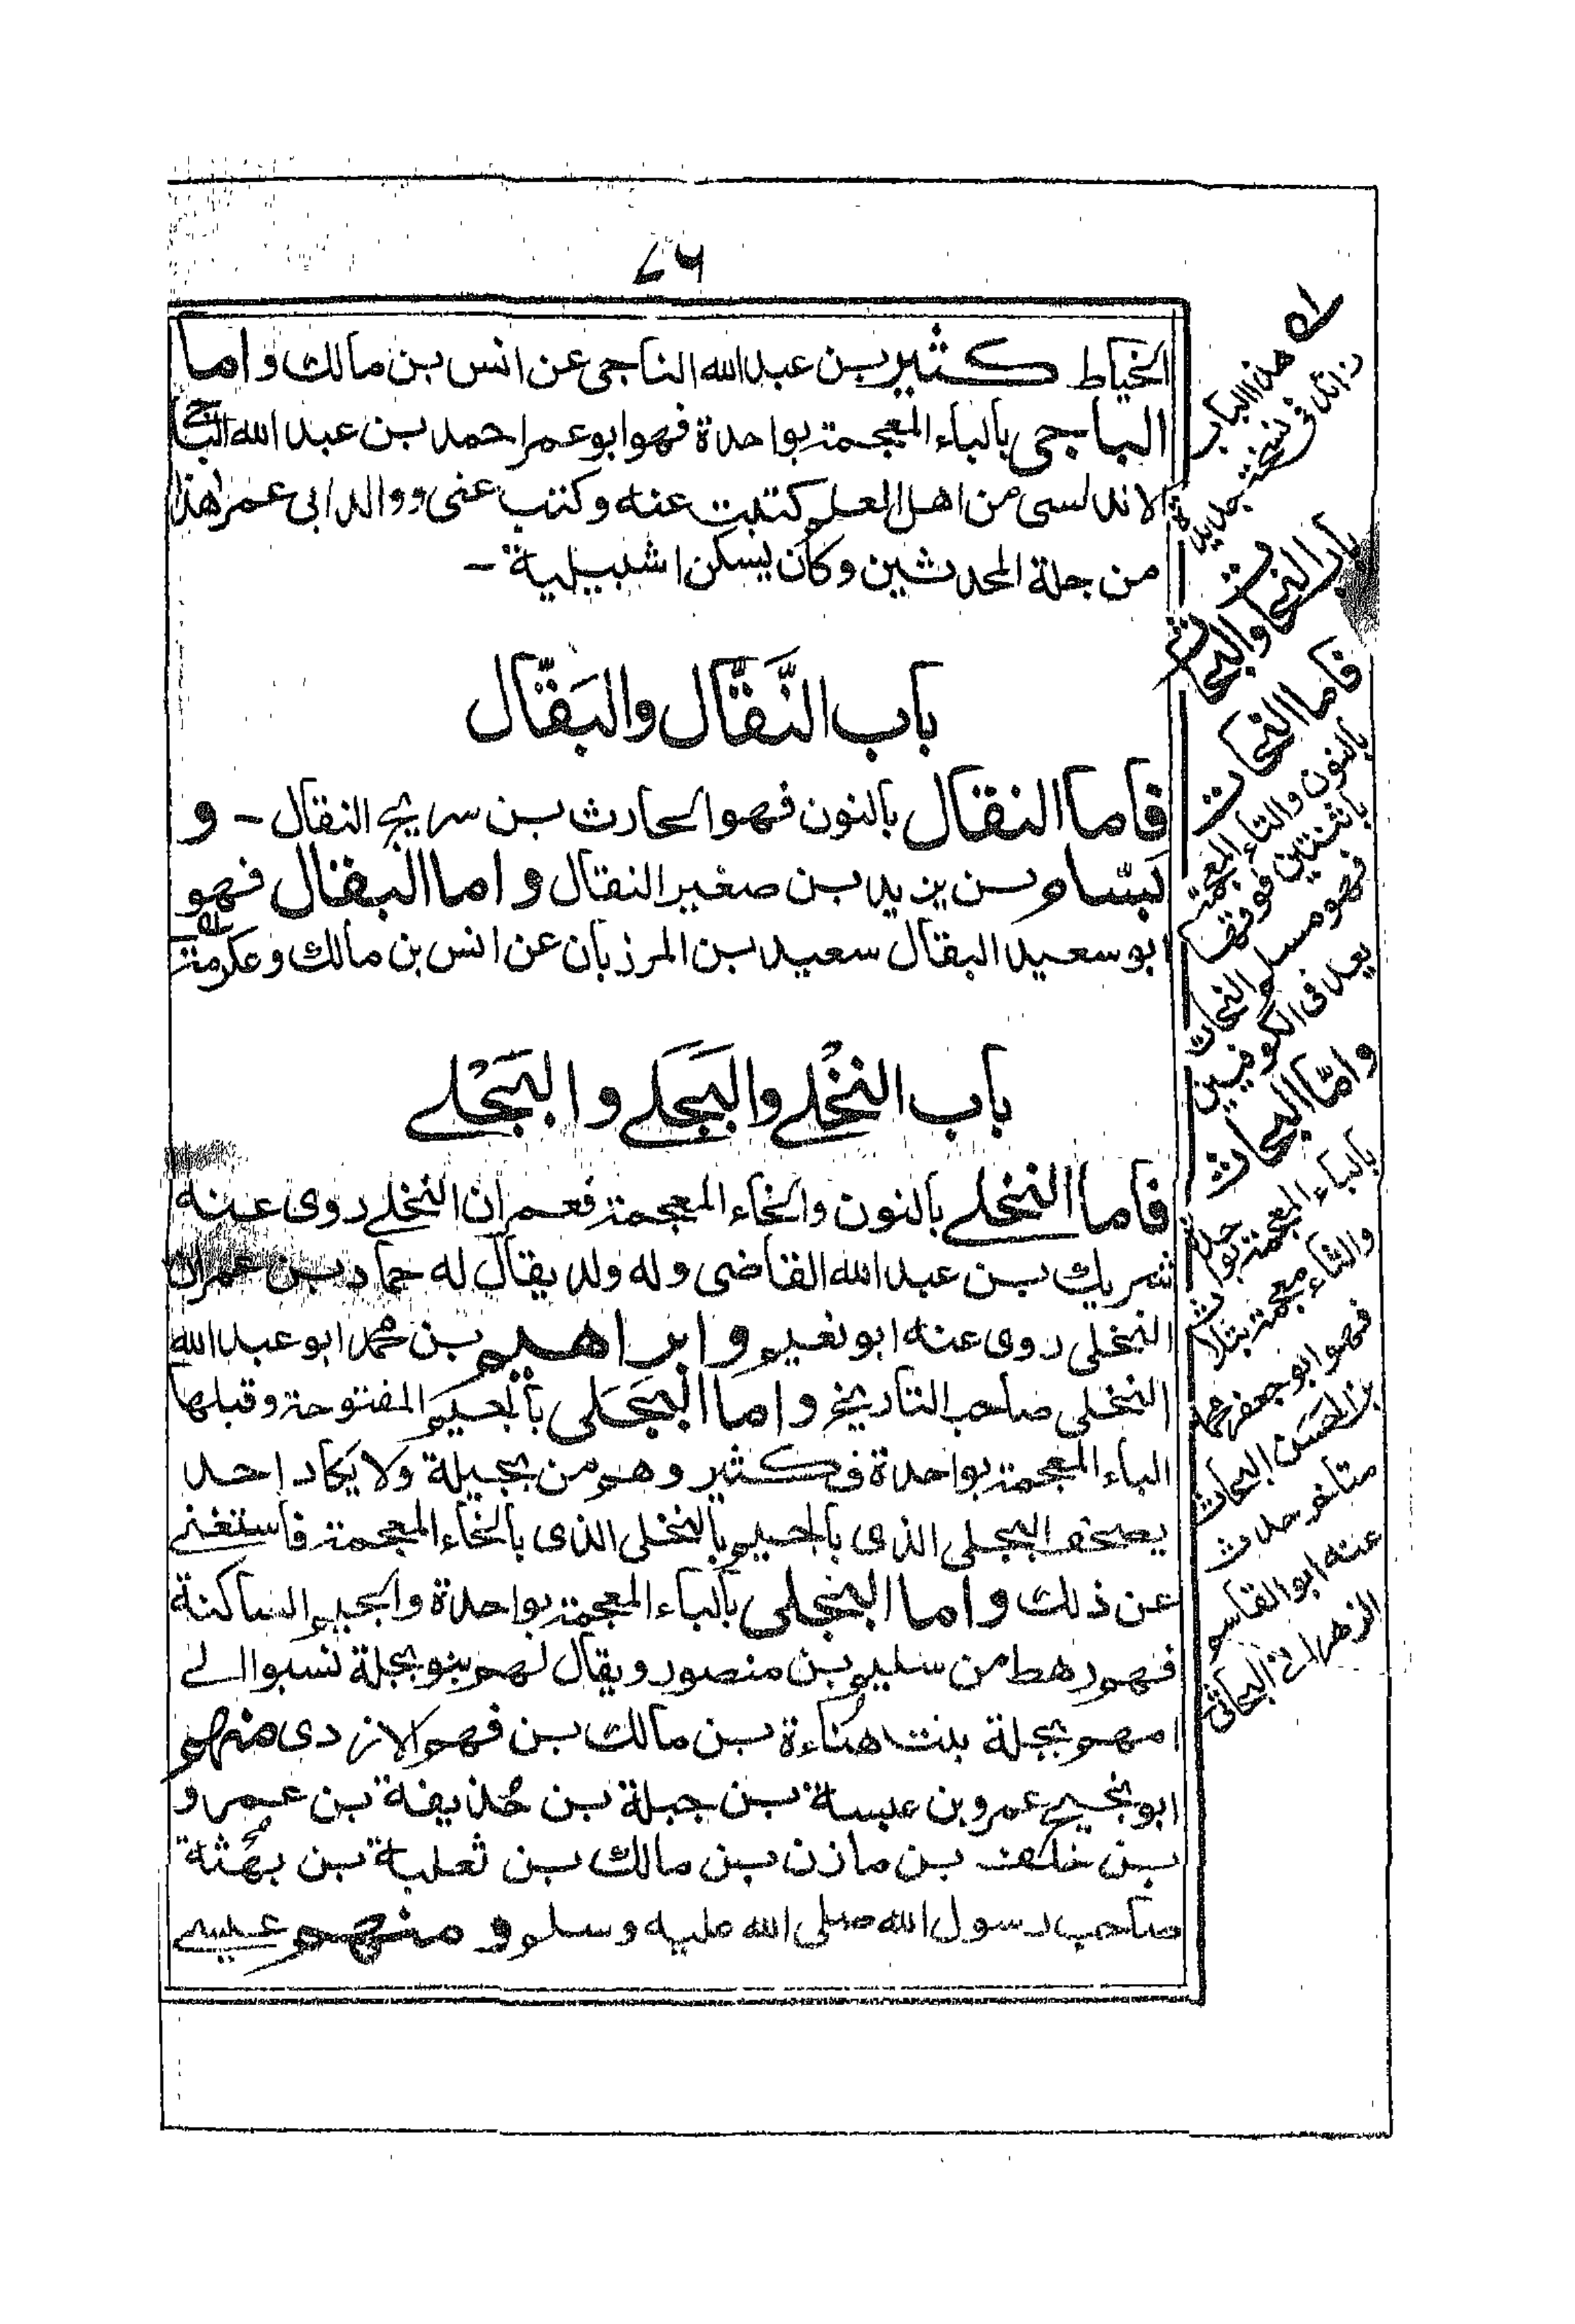 ٧٦
الخياط كثير بن عبد الله الناجى عن انس بن مالك واما
الباجى بالباء المعجمة بواحدة فهو ابو عمر احمد بن عبد الله الباجى
الاندلسى من اهل العلم كتبت عنه وكتب عنى ووالد ابى عمر هذا
من جلة المحدثين وكان يسكن اشبيلية -
باب النَّقَّال والبَقّال
فاما النقال بالنون فهو الحارث بن سريج النقال - و
بسّام بن يزيد بن صغير النقال واما البقال فهو
ابو سعيد البقال سعيد بن المرزبان عن انس بن مالك وعكرمة
باب النخْلے والبَجَلے والبَجْلے
فاما النخلے بالنون والخاء المعجمة فعمران النخلے روى عنه
شريك بن عبد الله القاضى وله ولد يقال له حماد بن عمران
النخلى روى عنه ابو نعيم وابراهيم بن محمد ابو عبد الله
النخلى صاحب التاريخ واما البجَلى بالجيم المفتوحة وقبلها
الباء المعجمة بواحدة فكثير وهم من بجيلة ولا يكاد احد
يصحف البجلى الذى بالجيم بالنخلى الذى بالخاء المعجمة فاستغنے
عن ذلك واما البجلى بالباء المعجمة بواحدة والجيم الساكنة
فهم رهط من سليم بن منصور ويقال لهم بنو بجلة نسبوا الے
امهم بجلة بنت هُنَاءة بن مالك بن فهم الازدى منهم
ابو نجيح عمرو بن عبسة بن جبلة بن حُذيفة بن عمرو
بن خلف بن مازن بن مالك بن ثعلبة بن بُهْثة
صاحب رسول الله صلى الله عليه وسلم و منهم عيسے
هذا الباب
زائد فى نسخة جديدة
باب النحات والبحاث
فاما النحات
بالنون والتاء المعجمة
باثنتين فوقها
فهو مسلم النحات
يعد فى الكوفيين
وامّا البحاث
بالباء المعجمة بواحدة
والثاء معجمة بثلاث
فهو ابو جعفر محمد
بن الحسن البحاث
متاخر حدث
عنه ابو القاسم
الزهرانى البحاثى